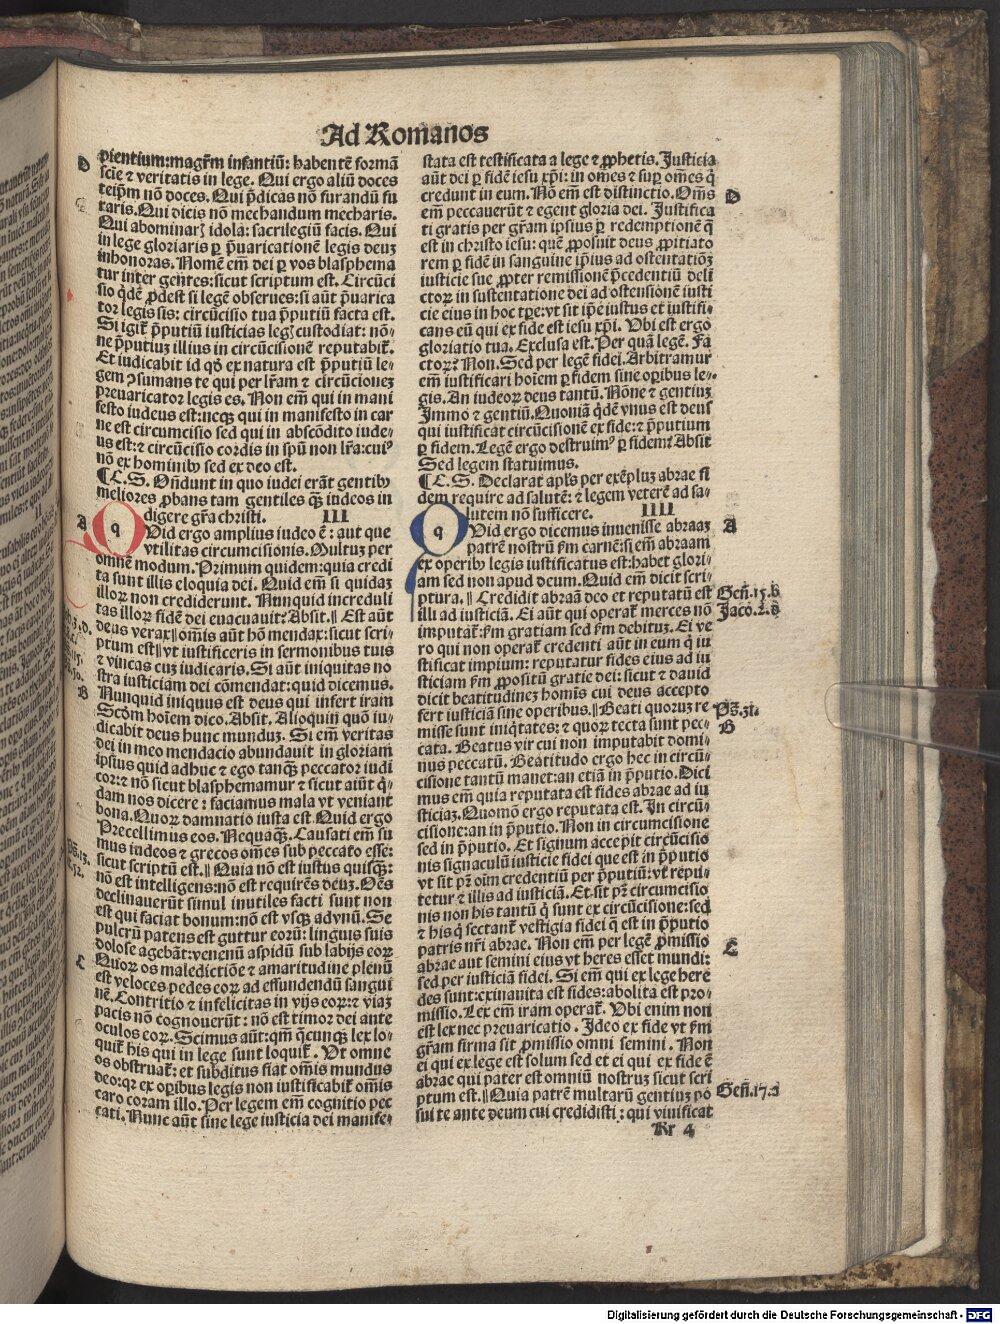 Ad Romanos
pientium:magr̄m infantiū: habentē formā
scīe ⁊ veritatis in lege. Qui ergo aliū doces
teip̄m nō doces. Qui p̄dicas nō furandū fu
raris. Qui dicis nō mechandum mecharis.
Qui abominarꝭ idola: sacrilegiū facis. Qui
in lege gloriaris ꝑ p̄uaricationē legis deuȝ
inhonoras. Nomē em̄ dei ꝑ vos blasphema
tur inter gentes: sicut scriptum est. Circūci
sio q̄dē ꝓdest si legē obserues: si aūt p̄uarica
tor legis sis: circūcisio tua p̄putiū facta est.
Si igit̄ p̄putiū iusticias legꝭ custodiat: nō⸗
ne p̄putiuȝ illius in circūcisionē reputabit̄.
Et iudicabit id qđ ex natura est p̄putiū le⸗
gem ꝯsumans te qui per lr̄am ⁊ circūcionez
preuaricator legis es. Non em̄ qui in mani
festo iudeus est: neqꝫ qui in manifesto in car
ne est circumcisio sed qui in abscōdito iude⸗
us est: ⁊ circūcisio cordis in spū non lr̄a: cuiꝰ
nō ex hominibꝫ sed ex deo est.
¶ C. S. Oñdunt in quo iudei erāt gentibꝫ
meliores ꝓbans tam gentiles qꝫ iudeos in
digere gr̄a christi. III
Quid ergo amplius iudeo ē: aut que
vtilitas circumcisionis. Multuȝ per
omnē modum. Primum quidem: quia credi
ta sunt illis eloquia dei. Quid em̄ si quidaȝ
illoꝝ non crediderunt. Nunquid increduli
tas illoꝝ fidē dei euacuauit? Absit. ‖ Est aūt
deus verax ‖ om̄is aūt hō mendax: sicut scri⸗
ptum est ‖ vt iustificeris in sermonibus tuis
⁊ vincas cuȝ iudicaris. Si aūt iniquitas no
stra iusticiam dei cōmendat: quid dicemus.
Nunquid iniquus est deus qui infert iram
Scđm hoīem dico. Absit. Alioquin quō iu⸗
dicabit deus hunc munduȝ. Si em̄ veritas
dei in meo mendacio abundauit in gloriam
ipsius quid adhuc ⁊ ego tanqꝫ peccator iudi
cor: ⁊ nō sicut blasphemamur ⁊ sicut aiūt q̄⸗
dam nos dicere: faciamus mala vt veniant
bona. Quoꝝ damnatio iusta est. Quid ergo
Precellimus eos. Nequaqꝫ. Causati em̄ su
mus iudeos ⁊ grecos om̄es sub peccato esse:
sicut scriptū est. ‖ Quia nō est iustus quisqꝫ:
nō est intelligens: nō est requirēs deuȝ. Om̄s
declinauerūt simul inutiles facti sunt non
est qui faciat bonum: nō est vsqꝫ ad vnū. Se
pulcrū patens est guttur eorū: linguis suis
dolose agebāt: venenū aspidū sub labijs eoꝝ
Quoꝝ os maledictiōe ⁊ amaritudine plenū
est veloces pedes eoꝝ ad effundendū sangui
nē. Contritio ⁊ infelicitas in vijs eoꝝ: ⁊ viaȝ
pacis nō cognouerūt: nō est timor dei ante
oculos eoꝝ. Scimus aūt: qm̄ q̄cunqꝫ lex lo⸗
quit̄ his qui in lege sunt loquit̄. Vt omne
os obstruat̄: et subditus fiat om̄is mundus
deo: qꝛ ex oꝑibus legis non iustificabit̄ om̄is
caro coram illo. Per legem em̄ cognitio pec
cati. Nunc aūt sine lege iusticia dei manife⸗
stata est testificata a lege ⁊ ꝓphetis. Justicia
aūt dei ꝑ fidē iesu xp̄i: in om̄es ⁊ suꝑ om̄es q̄
credunt in eum. Nō em̄ est distinctio. Om̄s
em̄ peccauerūt ⁊ egent gloria dei. Justifica
ti gratis per gr̄am ipsius ꝑ redemptionē q̄
est in christo iesu: quē ꝓposuit deus ꝓpitiato
rem ꝑ fidē in sanguine ip̄ius ad ostentationȝ
iusticie sue ꝓpter remissionē p̄cedentiū deli
ctoꝝ in sustentatione dei ad ostensionē iusti
cie eius in hoc tꝑe: vt sit ip̄e iustus et iustifi⸗
cans eū qui ex fide est iesu xp̄i. Vbi est ergo
gloriatio tua. Exclusa est. Per quā legē. Fa
ctoꝝ? Non. Sed per legē fidei. Arbitramur
em̄ iustificari hoīem ꝑ fidem sine oꝑibus le⸗
gis. An iudeoꝝ deus tantū. Nōne ⁊ gentiuȝ
Immo ⁊ gentiū. Quoniā q̄dē vnus est deus
qui iustificat circūcisionē ex fide: ⁊ p̄putium
ꝑ fidem. Legē ergo destruimꝰ ꝑ fidem? Absit
Sed legem statuimus.
¶ C. S. Declarat apl̄s per exēpluȝ abrae fi
dem require ad salutē: ⁊ legem veterē ad sa⸗
lutem nō sufficere. IIII
Quid ergo dicemus inuenisse abraaȝ
patrē nostrū ẜm carnē: si em̄ abraam
ex operibꝫ legis iustificatus est: habet glori⸗
am sed non apud deum. Quid em̄ dicit scri⸗
ptura. ‖ Credidit abraā deo et reputatū est
illi ad iusticiā. Ei aūt qui operat̄ merces nō
imputat̄: ẜm gratiam sed ẜm debituȝ. Ei ve
ro qui non operat̄ credenti aūt in eum q̄ iu
stificat impium: reputatur fides eius ad iu
sticiam ẜm ꝓpositū gratie dei: sicut ⁊ dauid
dicit beatitudineȝ homīs cui deus accepto
fert iusticiā sine operibus. ‖ Beati quoruȝ re
misse sunt iniq̄tates: ⁊ quoꝝ tecta sunt pec⸗
cata. Beatus vir cui non imputabit domi⸗
nus peccatū. Beatitudo ergo hec in circū⸗
cisione tantū manet: an etiā in p̄putio. Dici
mus em̄ quia reputata est fides abrae ad iu
sticiaȝ. Quomō ergo reputata est. In circū⸗
cisione: an in p̄putio. Non in circumcisione
sed in p̄putio. Et signum accepit circūcisio
nis signaculū iusticie fidei que est in p̄putio
vt sit pꝛ̄ oīm credentiū per p̄putiū: vt repu⸗
tetur ⁊ illis ad iusticiā. Et sit pꝛ̄ circūcisio
nis non his tantū q̄ sunt ex circūcisione: sed
⁊ his q̄ sectant̄ vestigia fidei q̄ est in p̄putio
patris nr̄i abrae. Non em̄ per legē ꝓmissio
abrae aut semini eius vt heres esset mundi:
sed per iusticiā fidei. Si em̄ qui ex lege here
des sunt: exinanita est fides: abolita est pro⸗
missio. Lex em̄ iram operat̄. Vbi enim non
est lex nec preuaricatio. Ideo ex fide vt ẜm
gr̄am firma sit ꝓmissio omni semini. Non
ei qui ex lege est solum sed et ei qui ex fide ē
abrae qui pater est omniū nostruȝ sicut scri
ptum est. ‖ Quia patrē multarū gentiuȝ po
sui te ante deum cui credidisti: qui viuificat
D
A
B
C
D
A
Geñ.15.b
Jaco.2.d
Pš.31.
B
C
Geñ.17.a
Kr 4
Digitalisierung gefördert durch die Deutsche Forschungsgemeinschaft - DFG